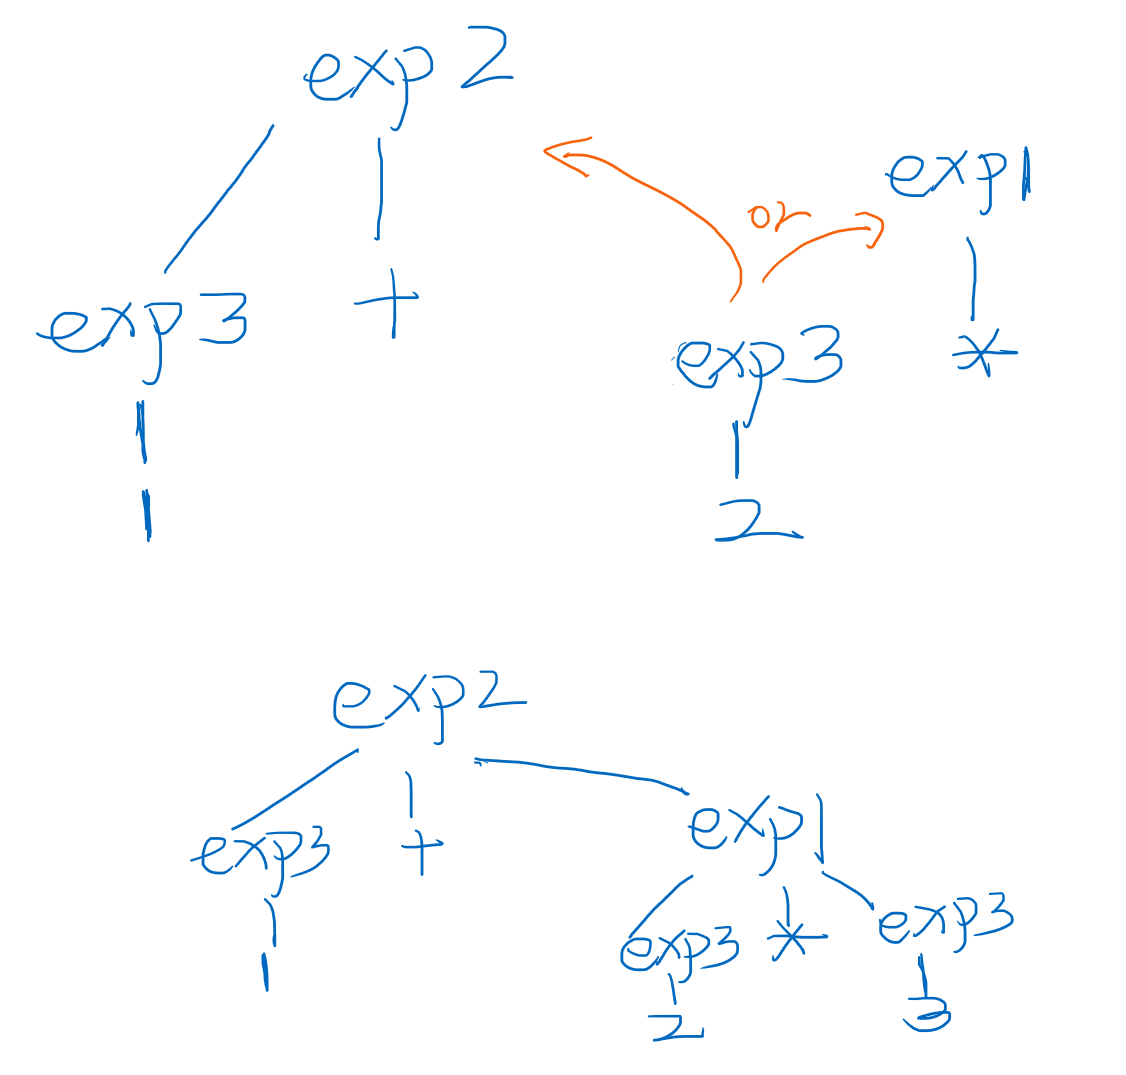 exp2
exp1
or
exp3 +
exp3 *
1
2
exp2
exp1
exp3 +
exp3 * exp3
1
2 3